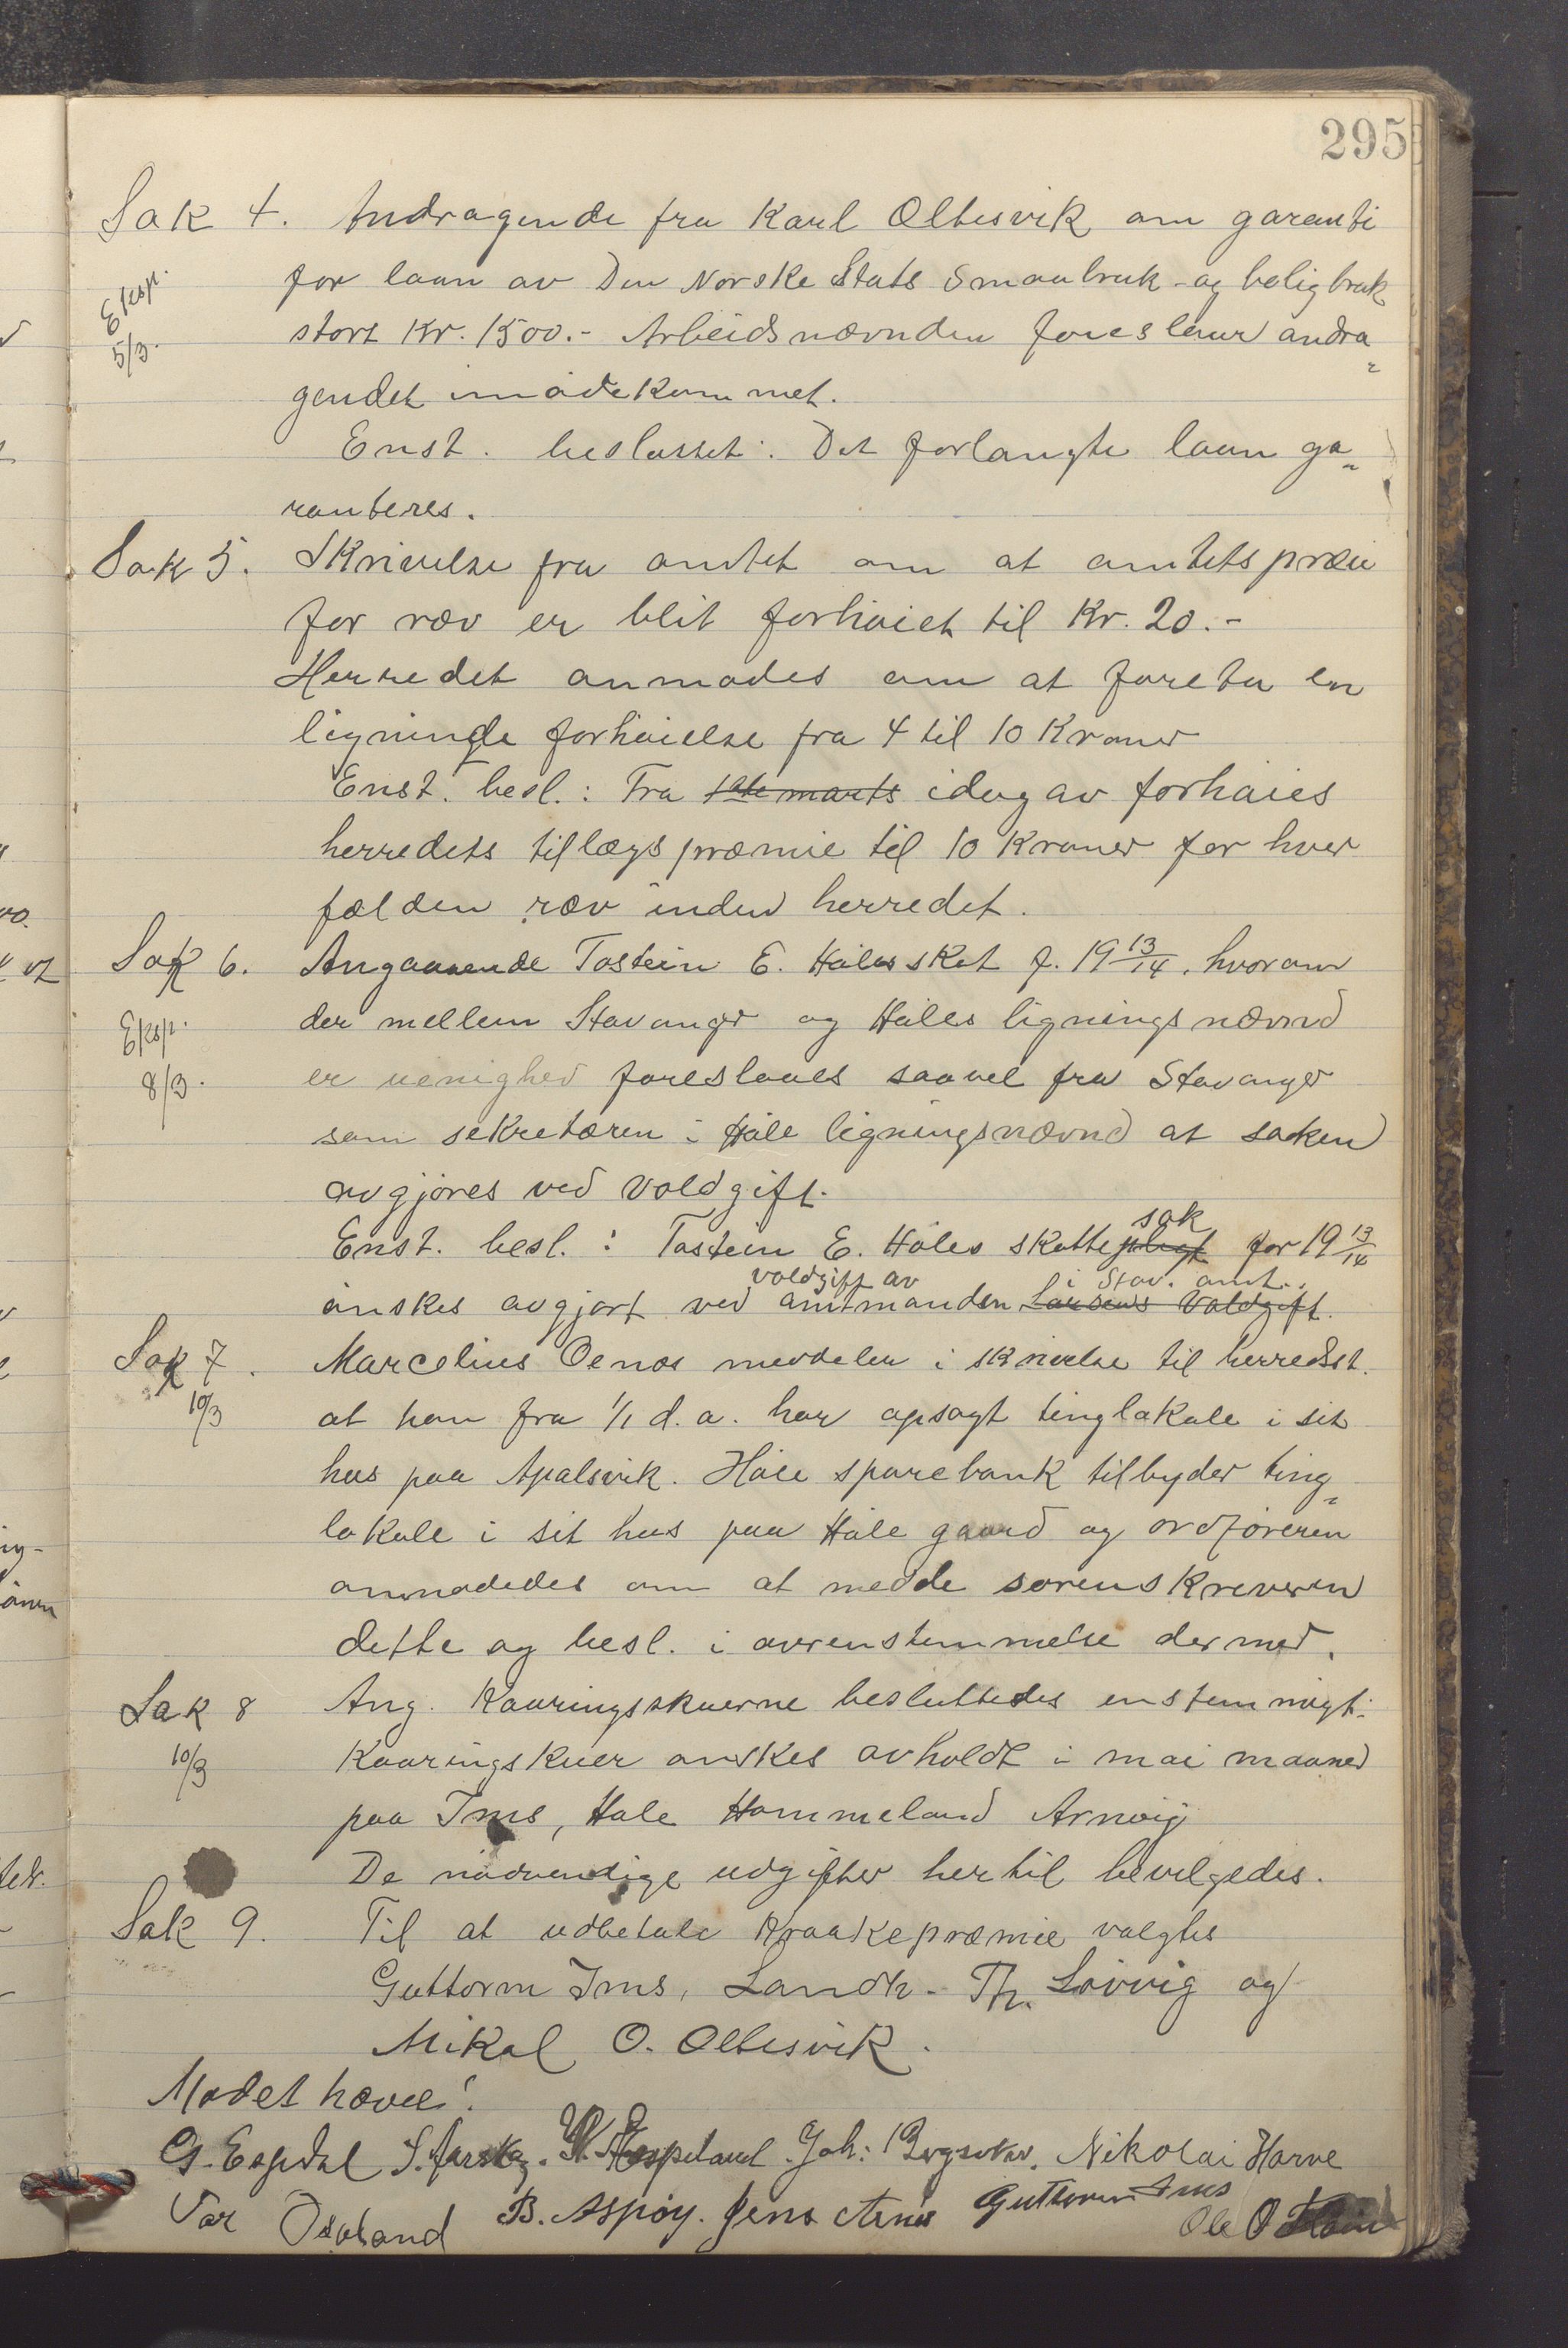 295
Sak 4. Andragende fra Karl Oltesvik om garanti
for laan av Den Norske Stats Smaabruk- og boligbruk
Eksp. 5/3.
stort Kr. 1500.- Arbeidsnævnden foreslaar andra-
gendet imødekommet.
Enst. besluttet: Det forlangte laan ga-
ranteres.
Sak 5. Skrivelse fra amtet om at amtets præmie
for ræv er blit forhøiet til Kr. 20.-
Herredet anmodes om at foreta en
lignende forhøielse fra 4 til 10 Kroner
Enst. besl.: Fra 1ste marts idag av forhøies
herredets tillægspræmie til 10 Kroner for hver
fælden ræv inden herredet.
Sak 6. Angaaende Tostein E. Høles skat f. 19 13/14, hvorom
Eksp. 8/3.
der mellem Stavanger og Høles ligningsnævnd
er uenighed foreslaaes saavel fra Stavanger
som sekretæren i Høle ligningsnævnd at saken
avgjøres ved voldgift.
Enst. besl.: Tostein E. Høles skattepligt sak for 19 13/14
ønskes avgjort ved voldgift av amtmanden Larsens Voldgift i Stav. amt.
Sak 7. Marcelius Oenes meddeler i skrivelse til herredsst.
10/3
at han fra 1/1 d.a. har opsagt tinglokale i sit
hus paa Apalsvik. Høle sparebank tilbyder ting-
lokale i sit hus paa Høle gaard og ordføreren
anmodedes om at medde sorenskreveren
dette og besl. i overenstemmelse dermed.
Sak 8 Ang. Kaaringsskuerne besluttedes enstemmigt:
10/3
Kaaringskuer ønskes avholdt i mai maaned
paa Ims, Høle Hommeland Arnvig
De nødvendige udgifter hertil bevilgedes.
Sak 9. Til at udbetale Kraakepræmie valgtes
Guttorm Ims, Landh. Th. Løvvig og
Mikal O. Oltesvik.
Mødet hævet!
G. Espedal S. Espeland. Joh: Nikolai Harve
B. Aspøy. Jens Guttorm Ims
Ole O